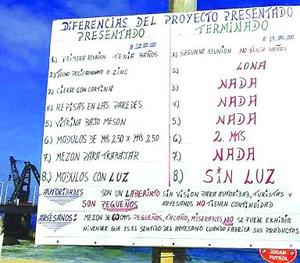 DIFERENCIAS DEL PROYECTO PRESENTADO
PRESENTADO
TERMINADO
1) PRIMERA REUNION TENIA BAÑOS
1) SEGUNDA REUNION NO TENIA BAÑOS
2) TECHO POLICARBONATO O ZINC
2) LONA
3) CIERRE CON CORTINA
3) NADA
4) REPISAS EN LAS PAREDES
4) NADA
5) VITRINA BAJO MESON
5) NADA
6) MODULOS DE MTS 2,50 X MTS 2,50
6) 2. MTS
7) MEZON PARA TRABAJAR
7) NADA
8) MODULOS CON LUZ
8) SIN LUZ
AUTORIDADES SON UN LABERINTO SIN VISION PARA AUTORIDAD, TURISTAS Y
SON PEQUEÑOS ARTESANOS NO TIENEN CONTINUIDAD
ARTESANOS: MEZON DE 60 MTS PEQUEÑOS, TACAÑO, MISERABLES NO SE PUEDE EXHIBIR
NI VENDER QUE ES EL SENTIDO DEL ARTESANO CUANDO FABRICA SUS PRODUCTOS
JUGAR
FUTBOL